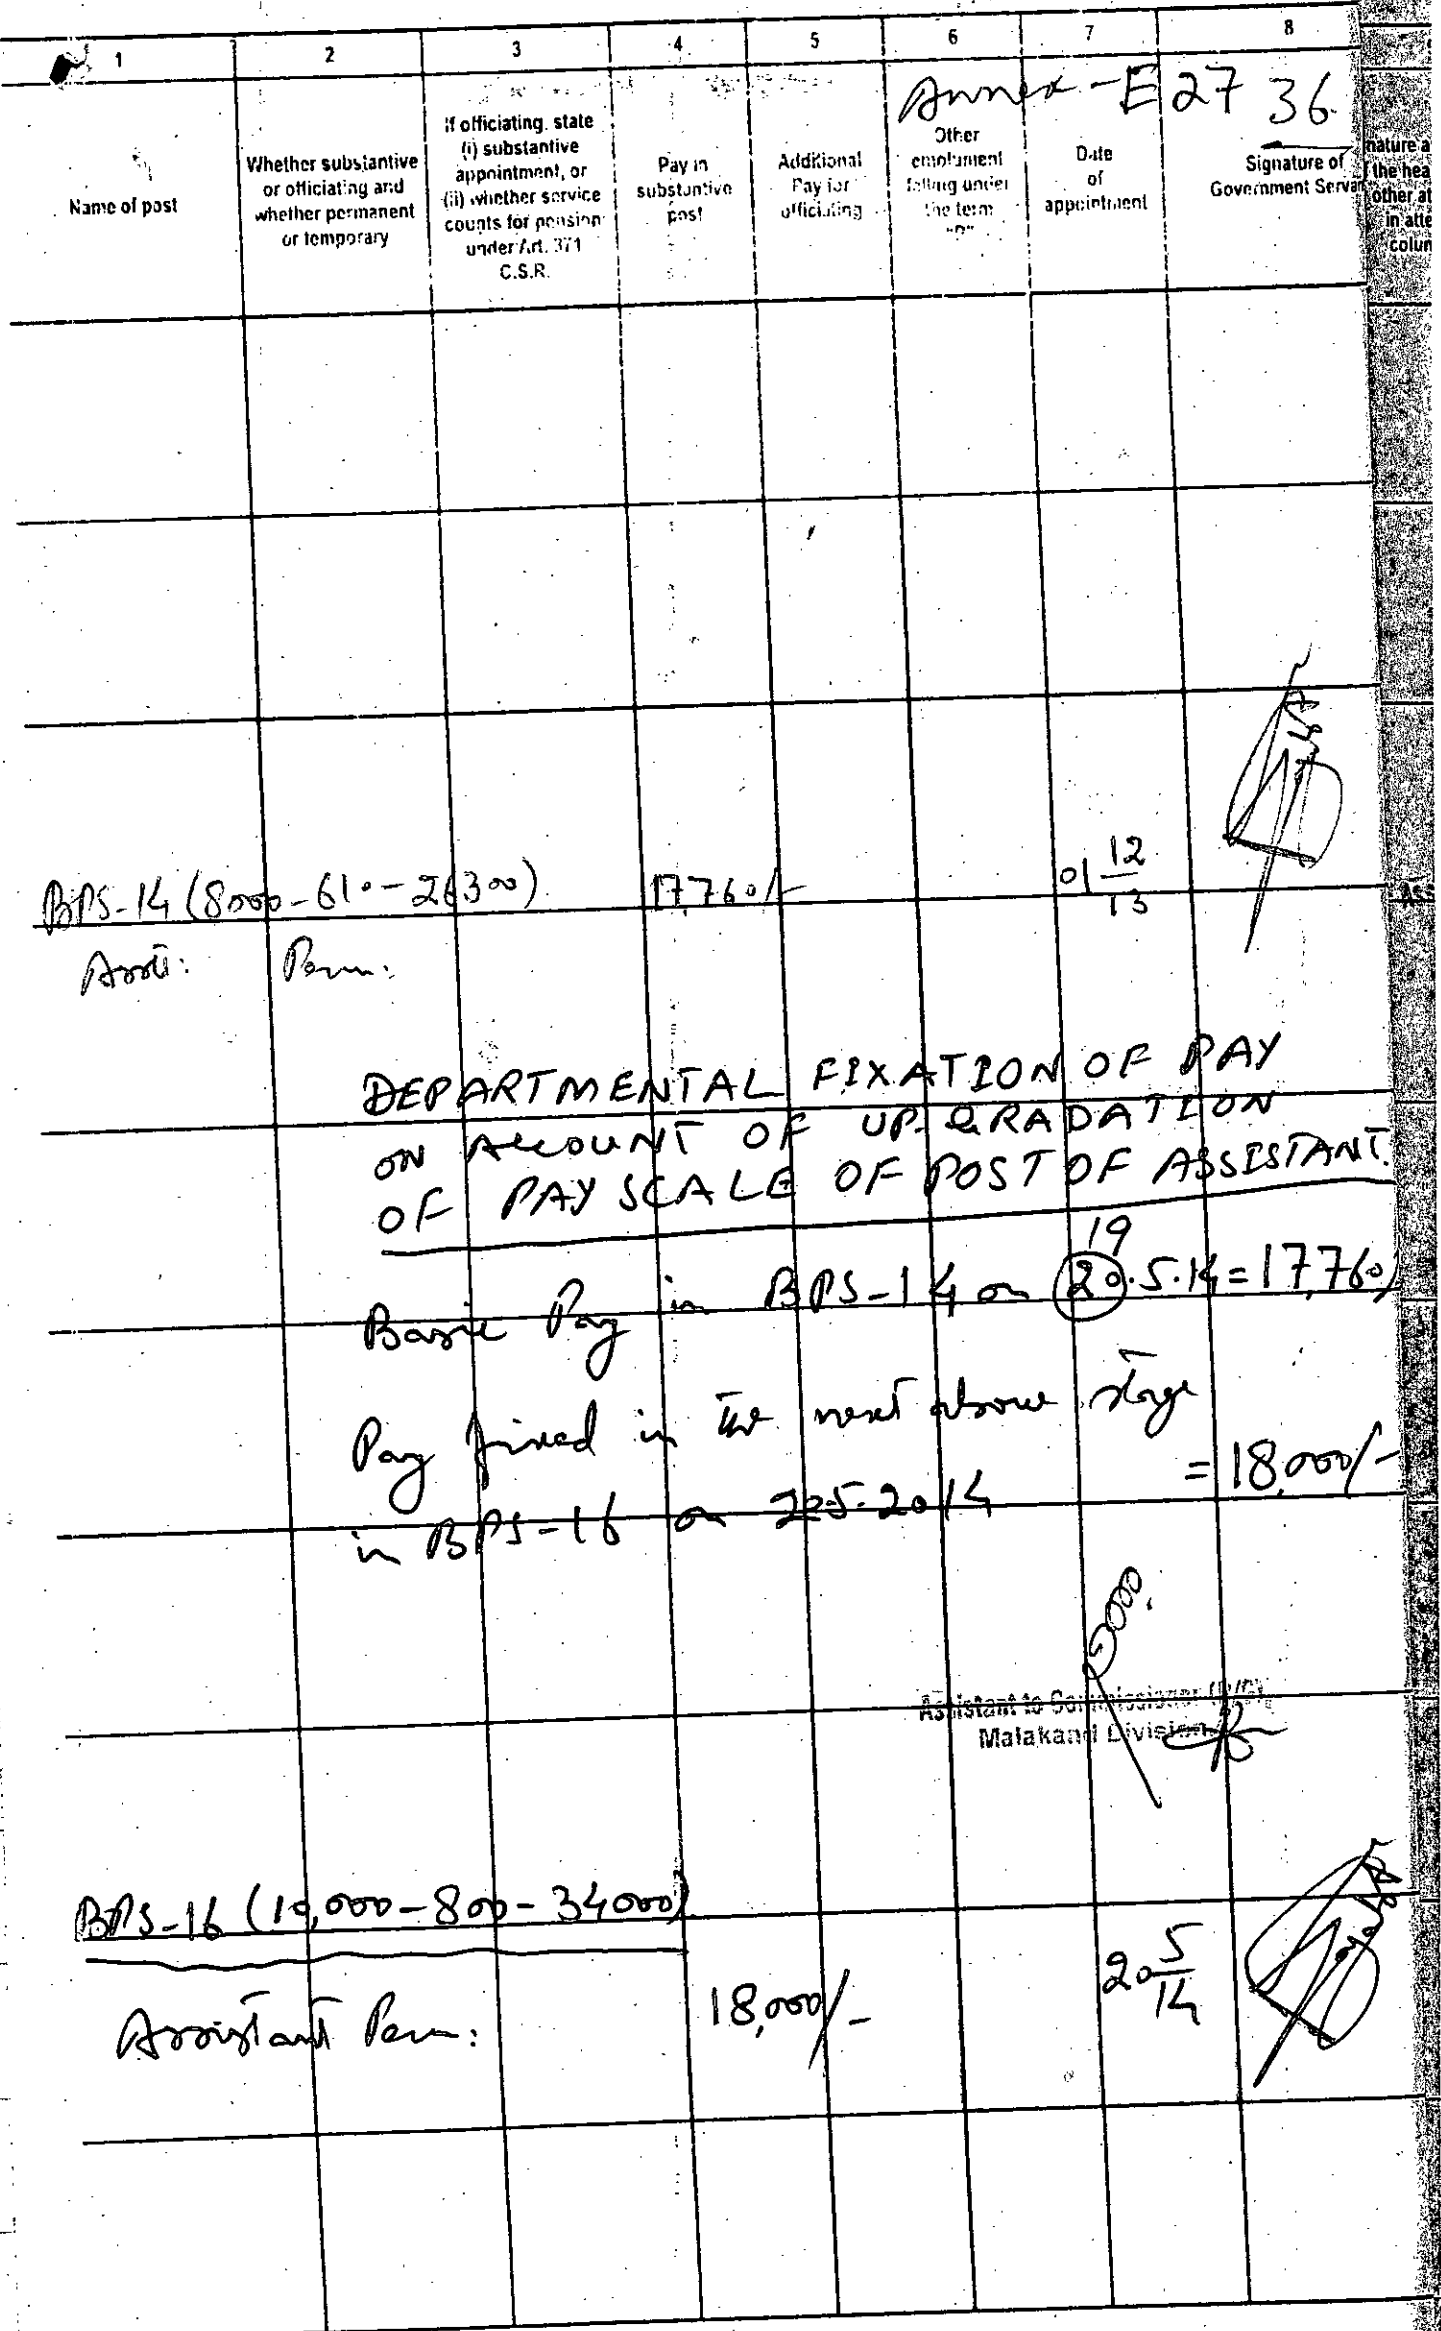 1 2 3 4 5 6 7 8
Annex-E 27 36
Name of post
Whether substantive
or officiating and
whether permanent
or temporary
If officiating, state
(i) substantive
appointment, or
(ii) whether service
counts for pension
under Art. 371
C.S.R.
Pay in
substantive
post
Additional
Pay for
officiating
Other
emolument
falling under
the term
Date
of
appointment
Signature of
Government Servan
nature a
the hea
other at
in atte
colum
BPS-14 (8000-610-26300) 17,760/- 01 12/13
Asstt: Perm:
Ass
DEPARTMENTAL FIXATION OF PAY
ON ACCOUNT OF UP.GRADATION
OF PAY SCALE OF POST OF ASSISTANT.
19
Basic Pay in BPS-14 on 20.5.14=17,760/
Pay fixed in the next above stage
in BPS-16 on 20.5.2014 =18,000/-
Assistant to Commissioner
Malakand Division
BPS-16 (10,000-800-34000)
Assistant Perm: 18,000/- 20 5/14